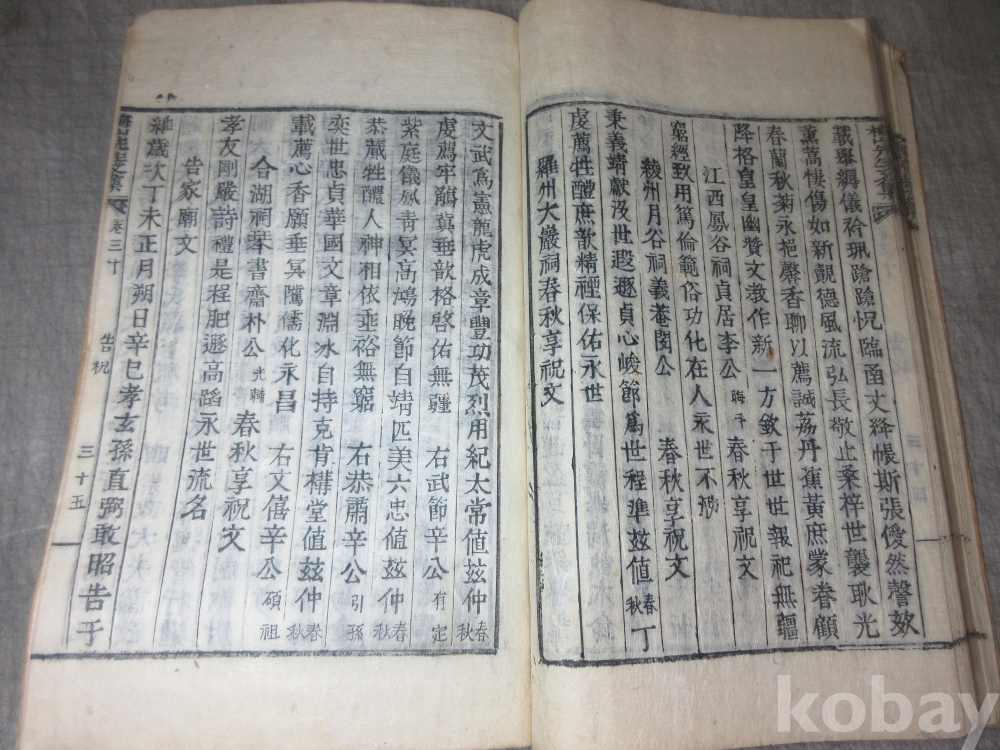 載擧縟儀衿珮蹌蹌怳臨函丈絳帳斯張僾然謦欬
薰蒿悽傷如新覿德風流弘長敬止桑梓世襲耿光
春蘭秋菊永挹馨香聊以薦誠荔丹蕉黃庶蒙眷顧
降格皇皇幽贊文教作新一方欽于世世報祀無疆
江西鳳谷祠貞居李公 春秋享祝文
窮經致用篤倫範俗功化在人永世不
綾州月谷祠義菴閔公 春秋享祝文
秉義靖獻沒世遐遯貞心峻節爲世程準玆値春秋丁
虔薦牲醴庶歆精禋保佑永世
羅州大巖祠春秋享祝文
文武爲憲龍虎成章豐功茂烈用紀太常値玆仲春秋
虔薦牢鬺冀垂歆格啓佑無疆 右武節辛公有定
紫庭儀鳳靑冥高鴻晩節白靖匹美六忠値玆仲春秋
恭蕆牲醴人神相依垂裕無窮 右恭肅辛公引孫
奕世忠貞華國文章淵冰自持克肯構堂値玆仲春秋
載薦心香願垂冥隲儒化永昌 右文僖辛公碩祖
合湖祠琹書齋朴公光輔 春秋享祝文
孝友剛嚴詩禮是程肥遯高蹈永世流名
告家廟文
維歲次丁未正月朔日辛巳孝玄孫直弼敢昭告于
卷三十 告祝 三十五
kobay